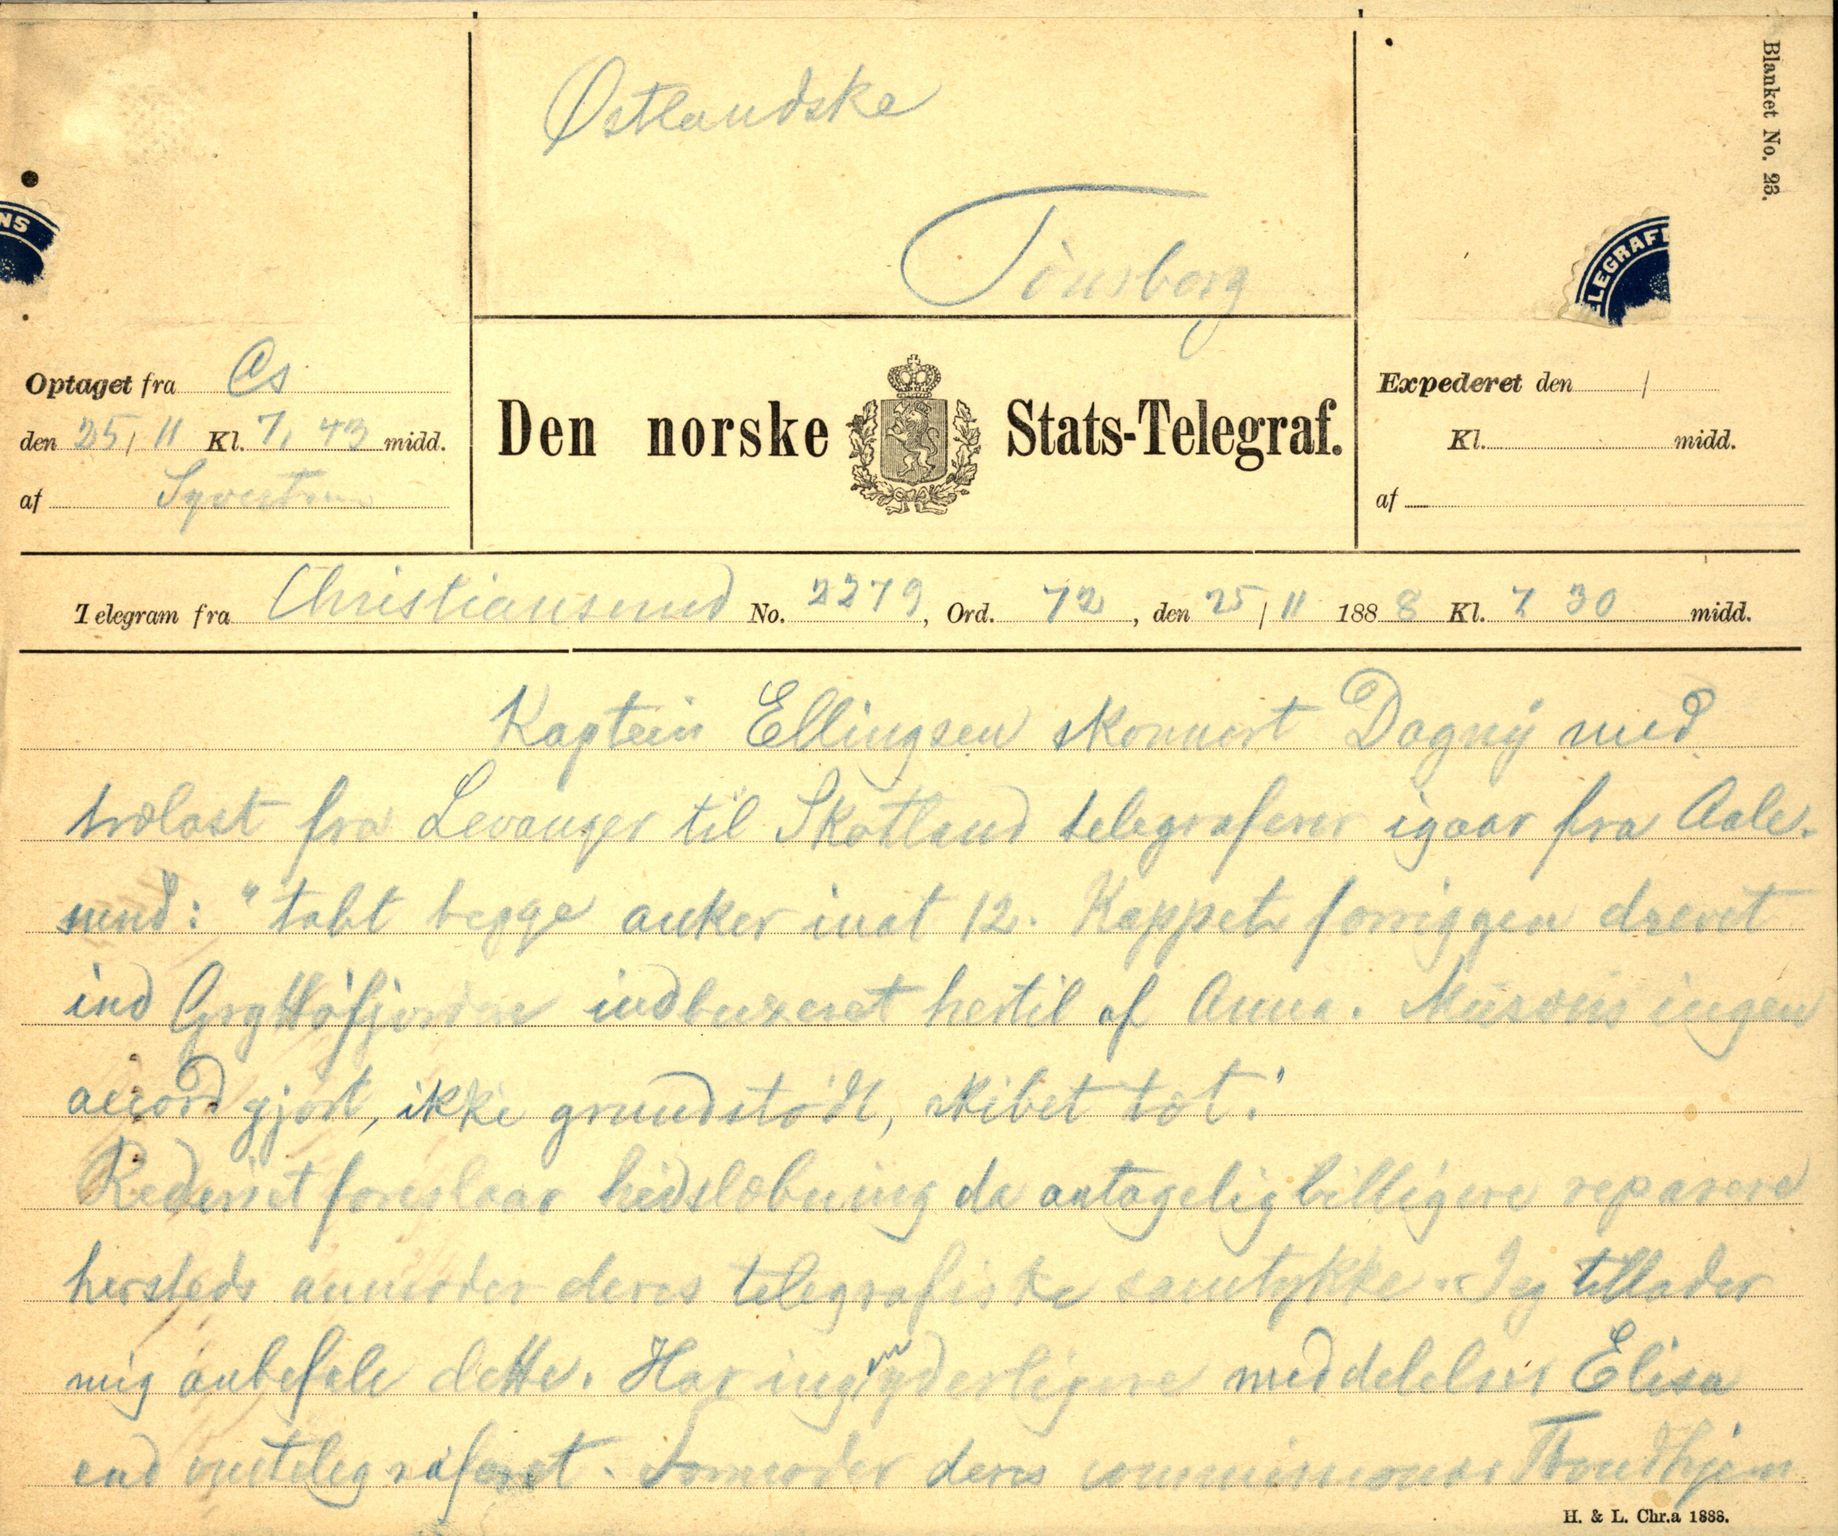 Blanket No. 23.
Østlandske
Tönsberg
NS
TELEGRAF
Optaget fra Cs
den 25/11 Kl. 7,43 midd.
af
Den norske Stats-Telegraf.
Expederet den /
Kl. midd.
af
Telegram fra Christiansund No. 2279, Ord. 72, den 25/11 1888 Kl. 7 30 midd.
Kaptein Ellingsen skonnert Dagny med
trælast fra Levanger til Skotland telegraferer igaar fra Aale-
sund: "tabt begge anker inat 12. Kappet forriggen drevet
ind Gryttöfjorden indbuxeret hertil af Anna. ingen
accord gjort, ikke grundstödt, skibet tæt."
Rederiet foreslaar hidslæbning da antagelig billigere reparere
hersteds anmoder deres telegrafiske samtykke. Jeg tillader
mig anbefale dette. Har ingen yderligere meddelelser Elisa
end omtelegraferet. Formoder deres commissionær Trondhjem
H. & L. Chr.a 1888.